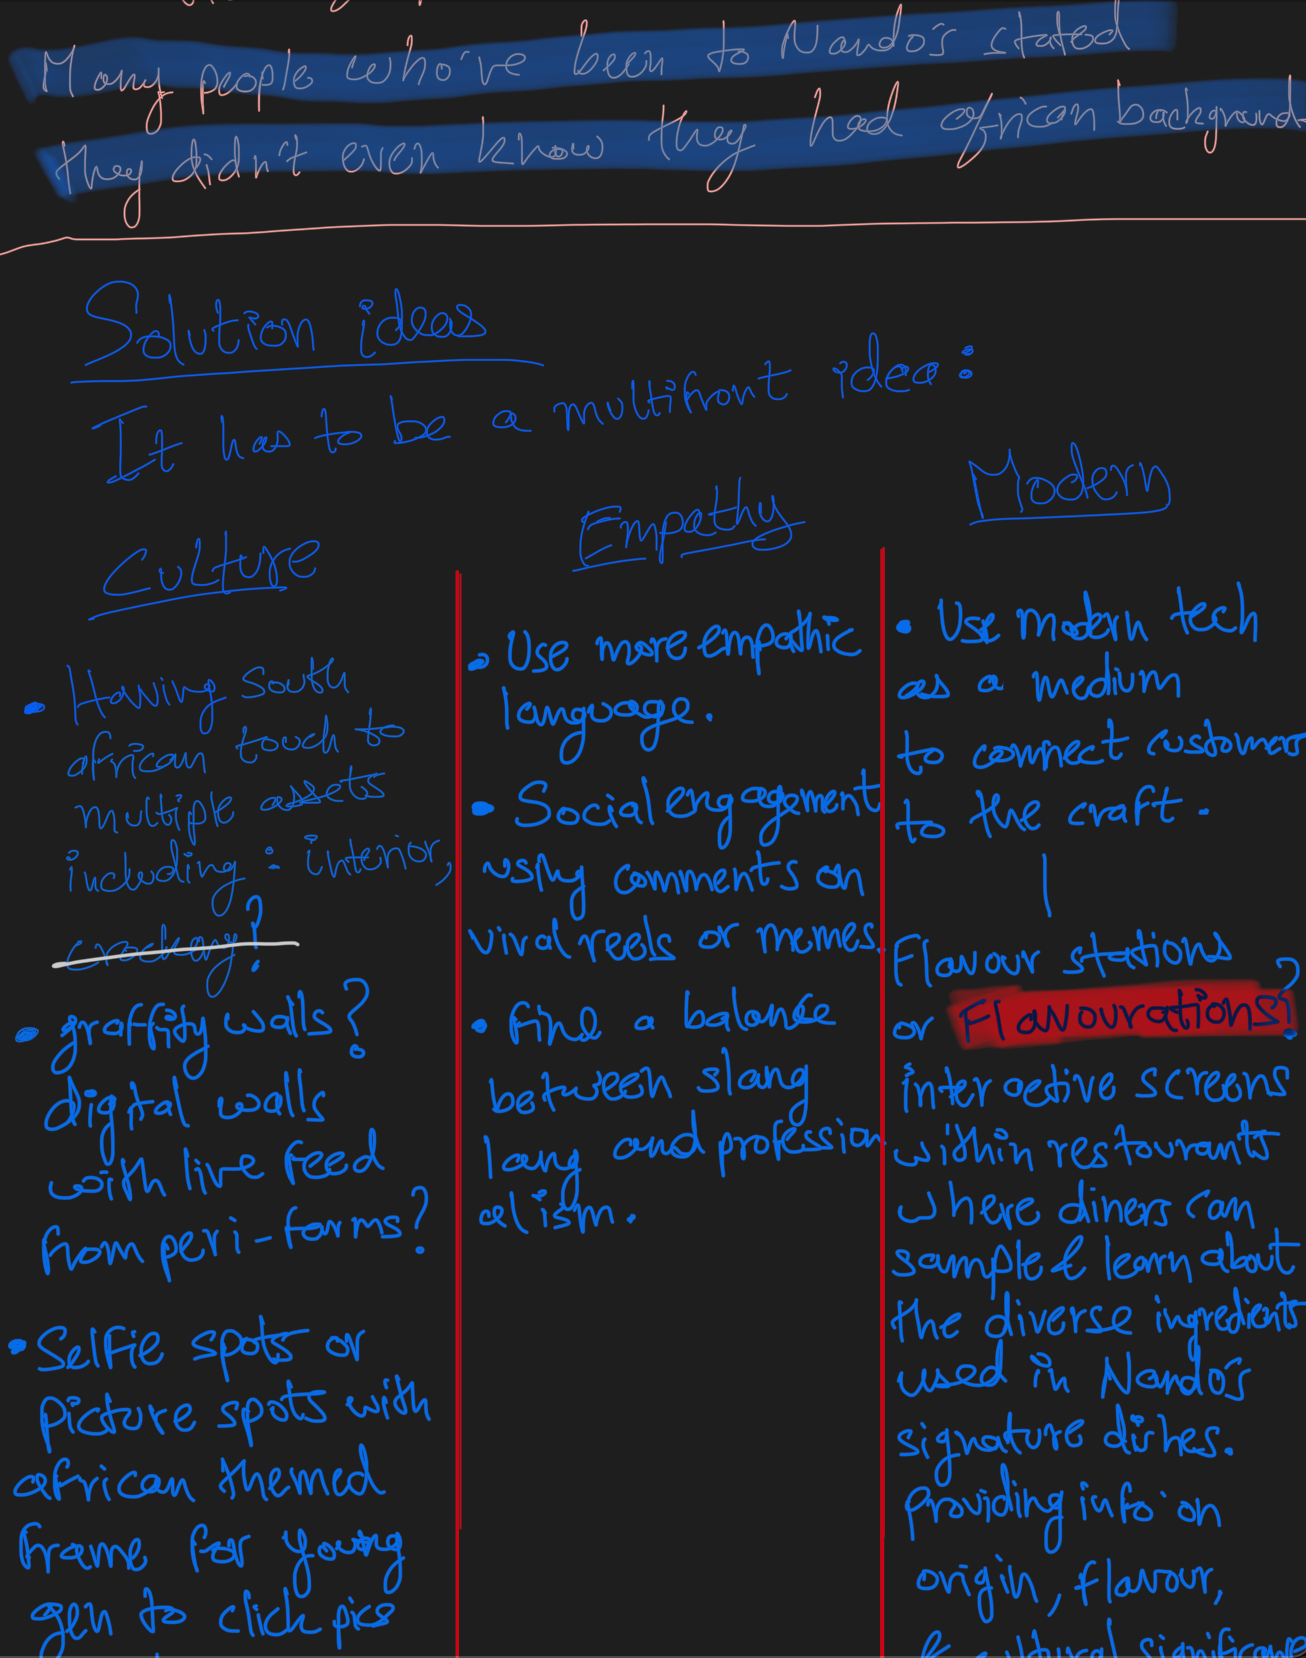 Many people who've been to Nando's stated
they didn't even know they had african background.
Solution ideas
It has to be a multifront idea:
Culture
• Having South
african touch to
multiple assets
including: interior,
crockery?
• graffity walls?
digital walls
with live feed
from peri-farms?
• Selfie spots or
picture spots with
african themed
frame for young
gen to click pics
Empathy
• Use more empathic
language.
• Social engagement
using comments on
viral reels or memes.
• find a balance
between slang
lang and profession
alism.
Modern
• Use modern tech
as a medium
to connect customers
to the craft.
Flavour stations
or Flavourations?
interactive screens
within restaurants
where diners can
sample & learn about
the diverse ingredients
used in Nando's
signature dishes.
Providing info on
origin, flavour,
& cultural significance